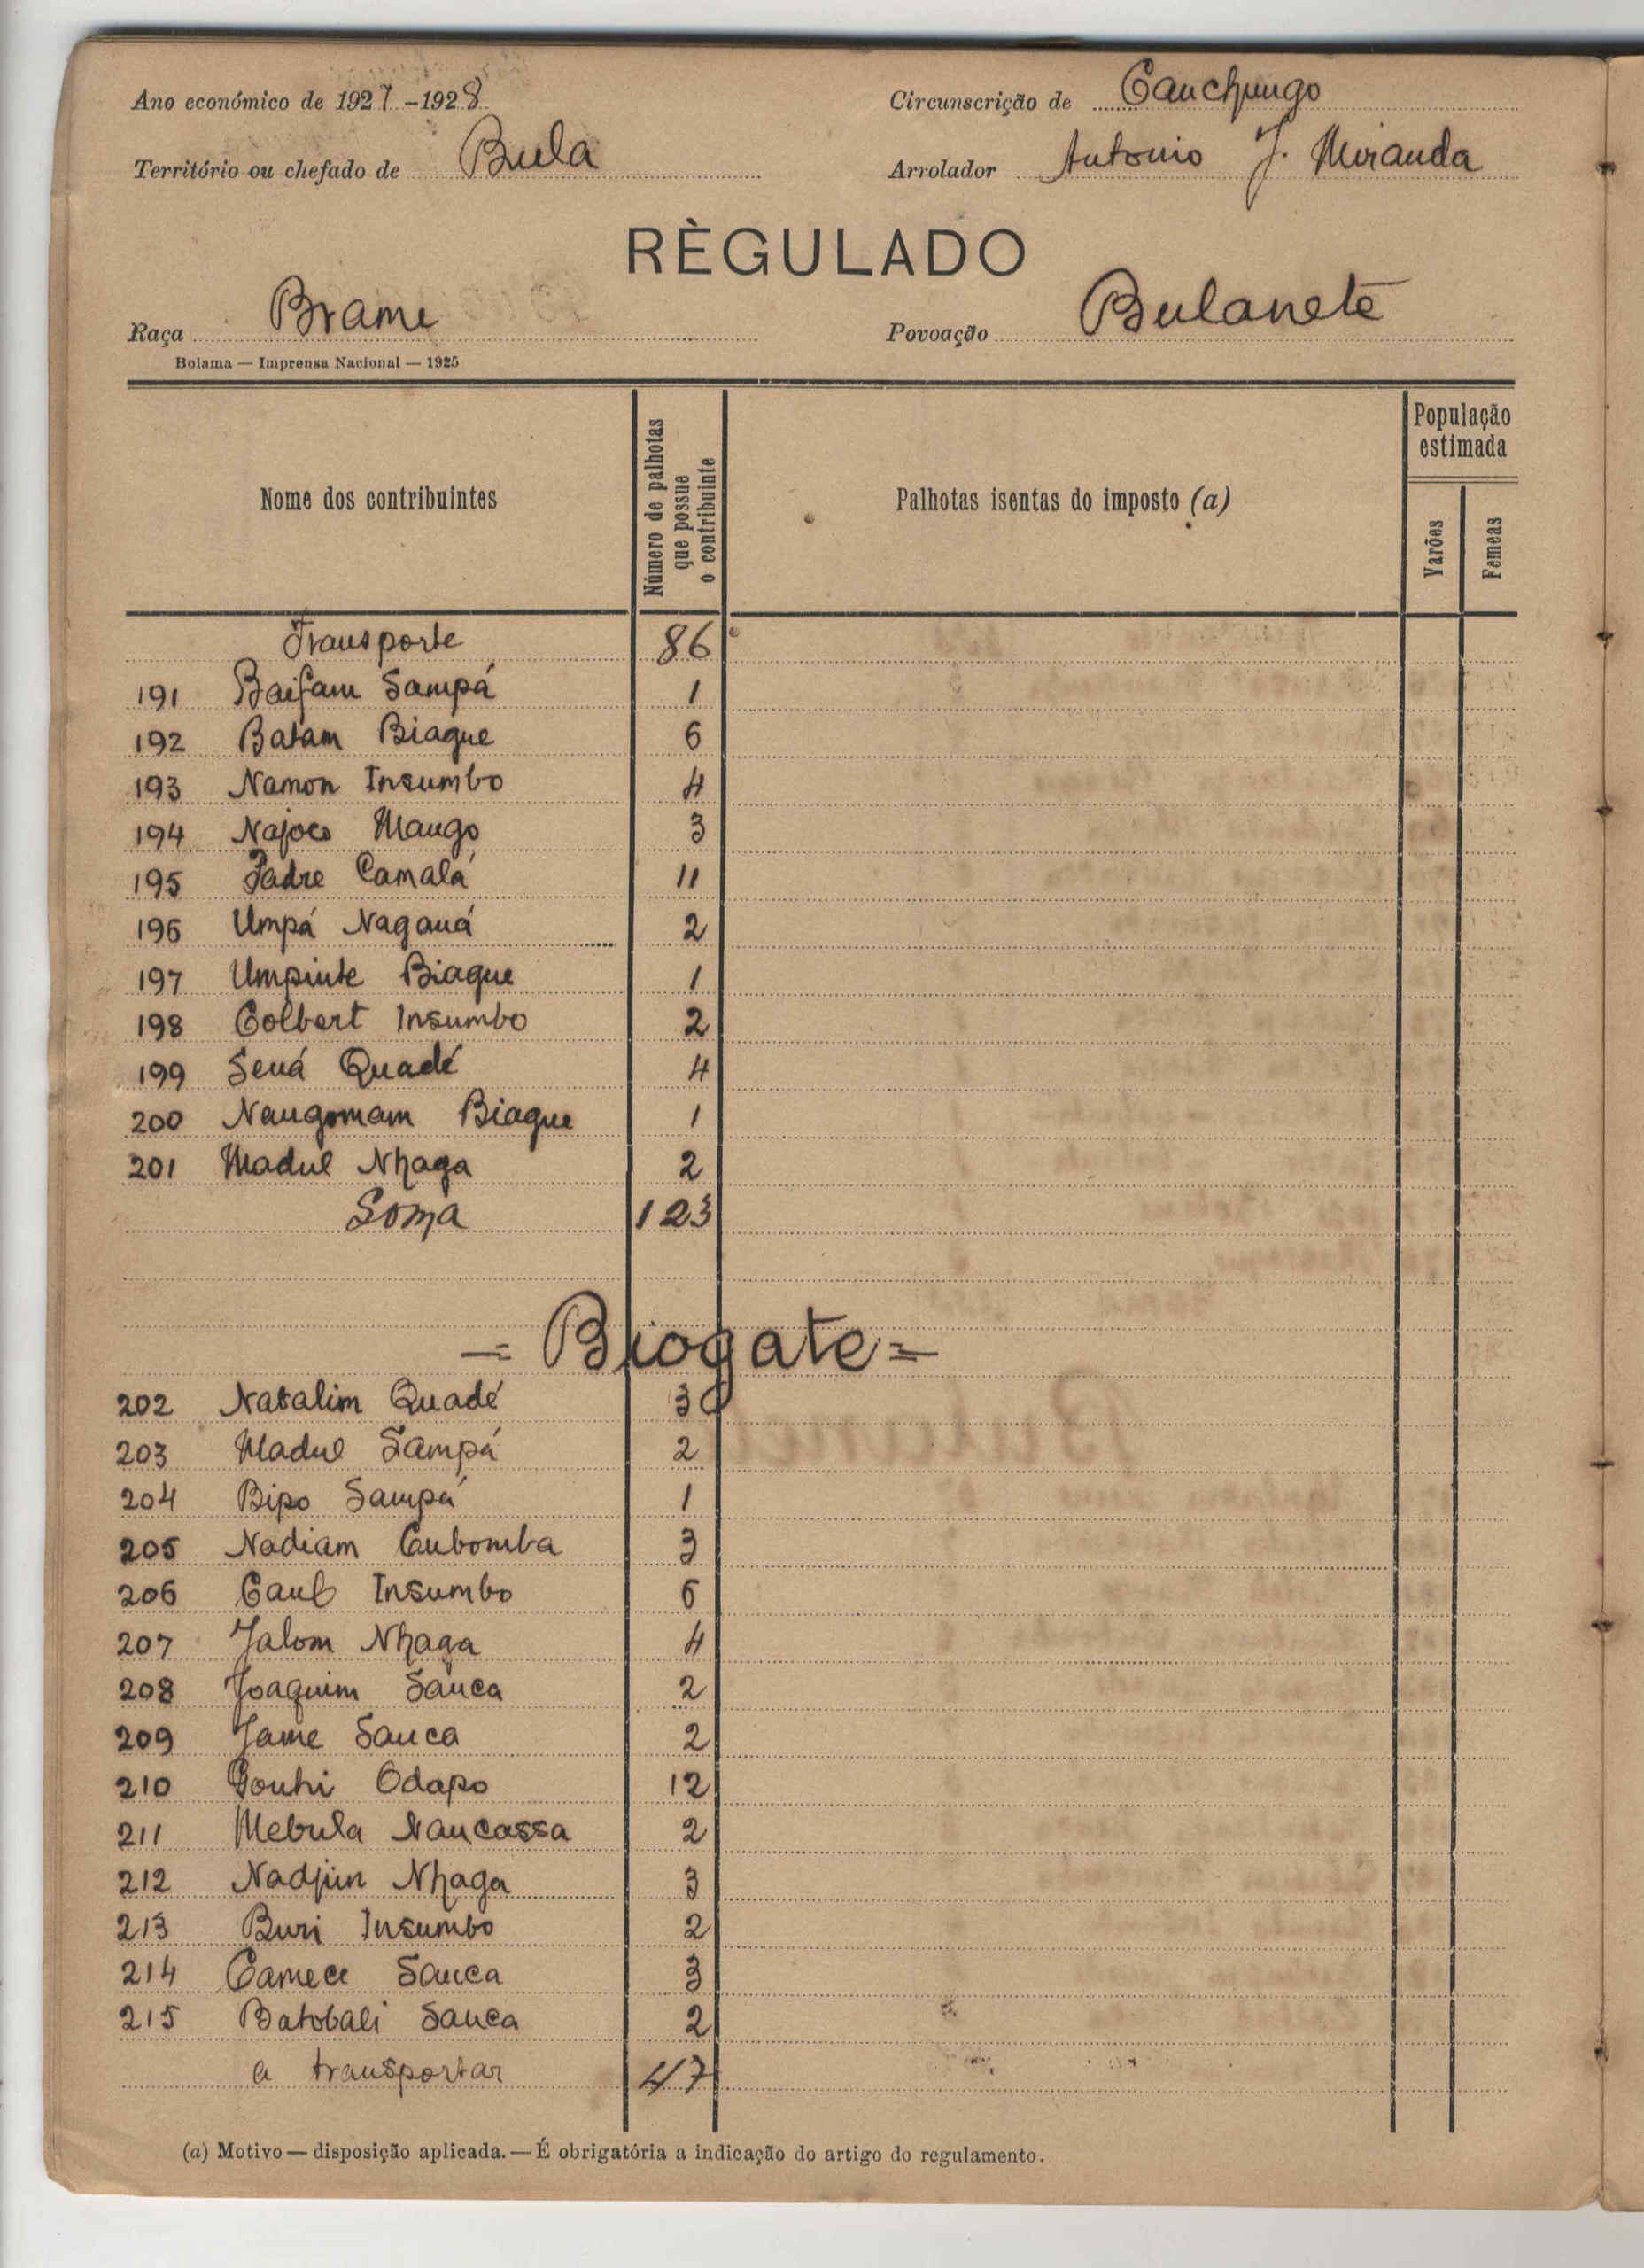 Ano económico de 1927-1928
Circunscrição de Canchungo
Território ou chefado de Bula
Arrolador Antonio J. Miranda
RÈGULADO
Raça Brame
Povoação Bulanete
Bolama — Imprensa Nacional — 1925
Nome dos contribuintes
Número de palhotas que possue o contribuinte
Palhotas isentas do imposto (a)
População estimada
Varões
Femeas
Transporte 86
191 Baifam Sampá 1
192 Batam Biague 6
193 Namon Insumbo 4
194 Najoco Mango 3
195 Padre Camalá 11
196 Umpá Naganá 2
197 Umpinte Biague 1
198 Colbert Insumbo 2
199 Sená Quadé 4
200 Nangomam Biague 1
201 Madul Nhaga 2
Soma 123
= Biogate =
202 Natalim Quadé 3
203 Madul Sampá 2
204 Bipo Sampá 1
205 Nadiam Cubomba 3
206 Caul Insumbo 6
207 Jalom Nhaga 4
208 Joaquim Sanca 2
209 Jame Sanca 2
210 Odapo 12
211 Mebula Nancassa 2
212 Nadjim Nhaga 3
213 Buri Insumbo 2
214 Camece Sanca 3
215 Batobali Sanca 2
a transportar 47
(a) Motivo — disposição aplicada. — É obrigatória a indicação do artigo do regulamento.